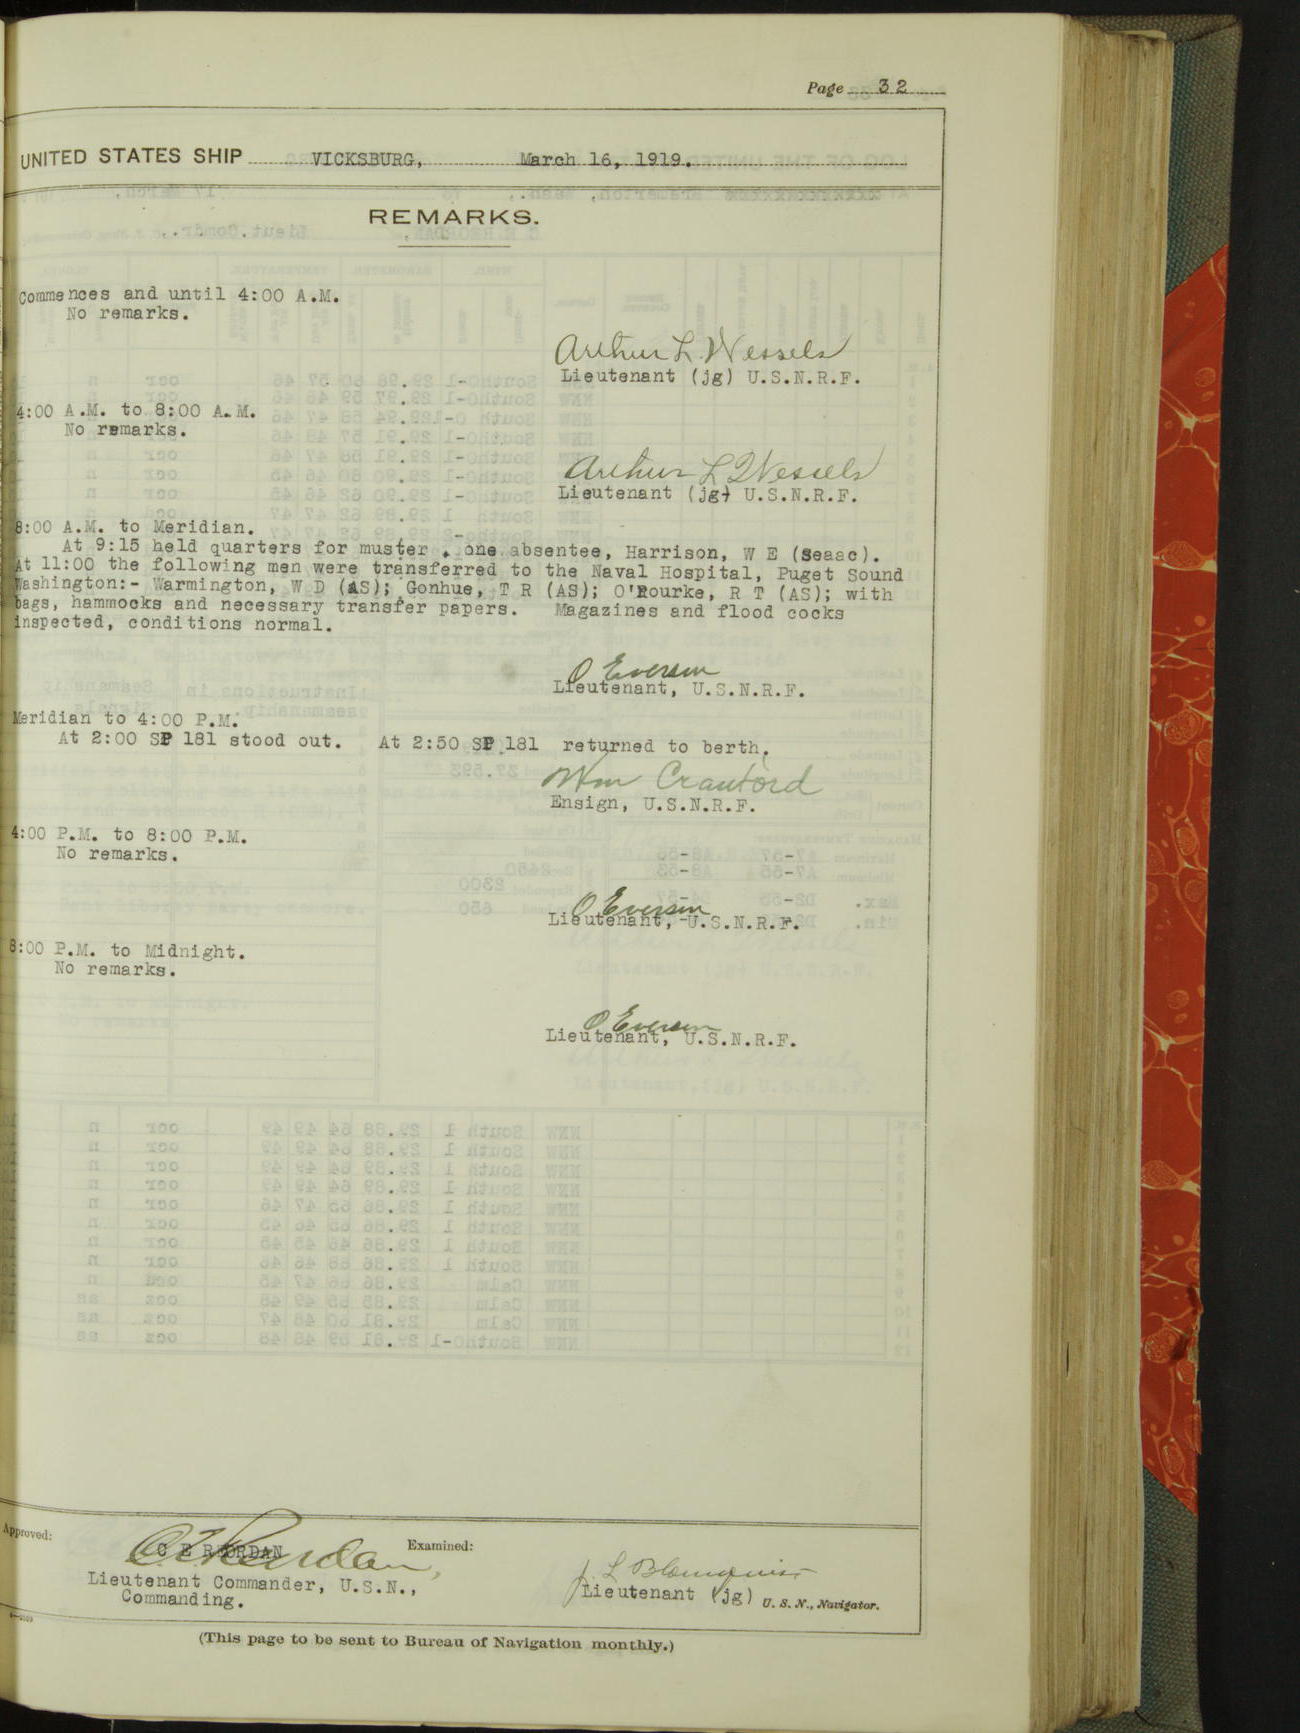 Page 32
UNITED STATES SHIP VICKSBURG, March 16, 1919.
REMARKS.
Commences and until 4:00 A.M.
No remarks.
Arthur L. Wessels
Lieutenant (jg) U.S.N.R.F.
4:00 A.M. to 8:00 A.M.
No remarks.
Arthur L Wessels
Lieutenant (jg) U.S.N.R.F.
8:00 A.M. to Meridian.
At 9:15 held quarters for muster . one absentee, Harrison, W E (seaac).
At 11:00 the following men were transferred to the Naval Hospital, Puget Sound
Washington:- Warmington, W D (AS); Gonhue, T R (AS); O'Rourke, R T (AS); with
bags, hammocks and necessary transfer papers. Magazines and flood cocks
inspected, conditions normal.
O Everson
Lieutenant, U.S.N.R.F.
Meridian to 4:00 P.M.
At 2:00 SP 181 stood out. At 2:50 SP 181 returned to berth.
Wm Crawford
Ensign, U.S.N.R.F.
4:00 P.M. to 8:00 P.M.
No remarks.
O Everson
Lieutenant, U.S.N.R.F.
8:00 P.M. to Midnight.
No remarks.
O Everson
Lieutenant, U.S.N.R.F.
Approved:
C E REORDAN
Lieutenant Commander, U.S.N.,
Commanding.
Examined:
J L Blomquist
Lieutenant (jg) U. S. N., Navigator.
(This page to be sent to Bureau of Navigation monthly.)